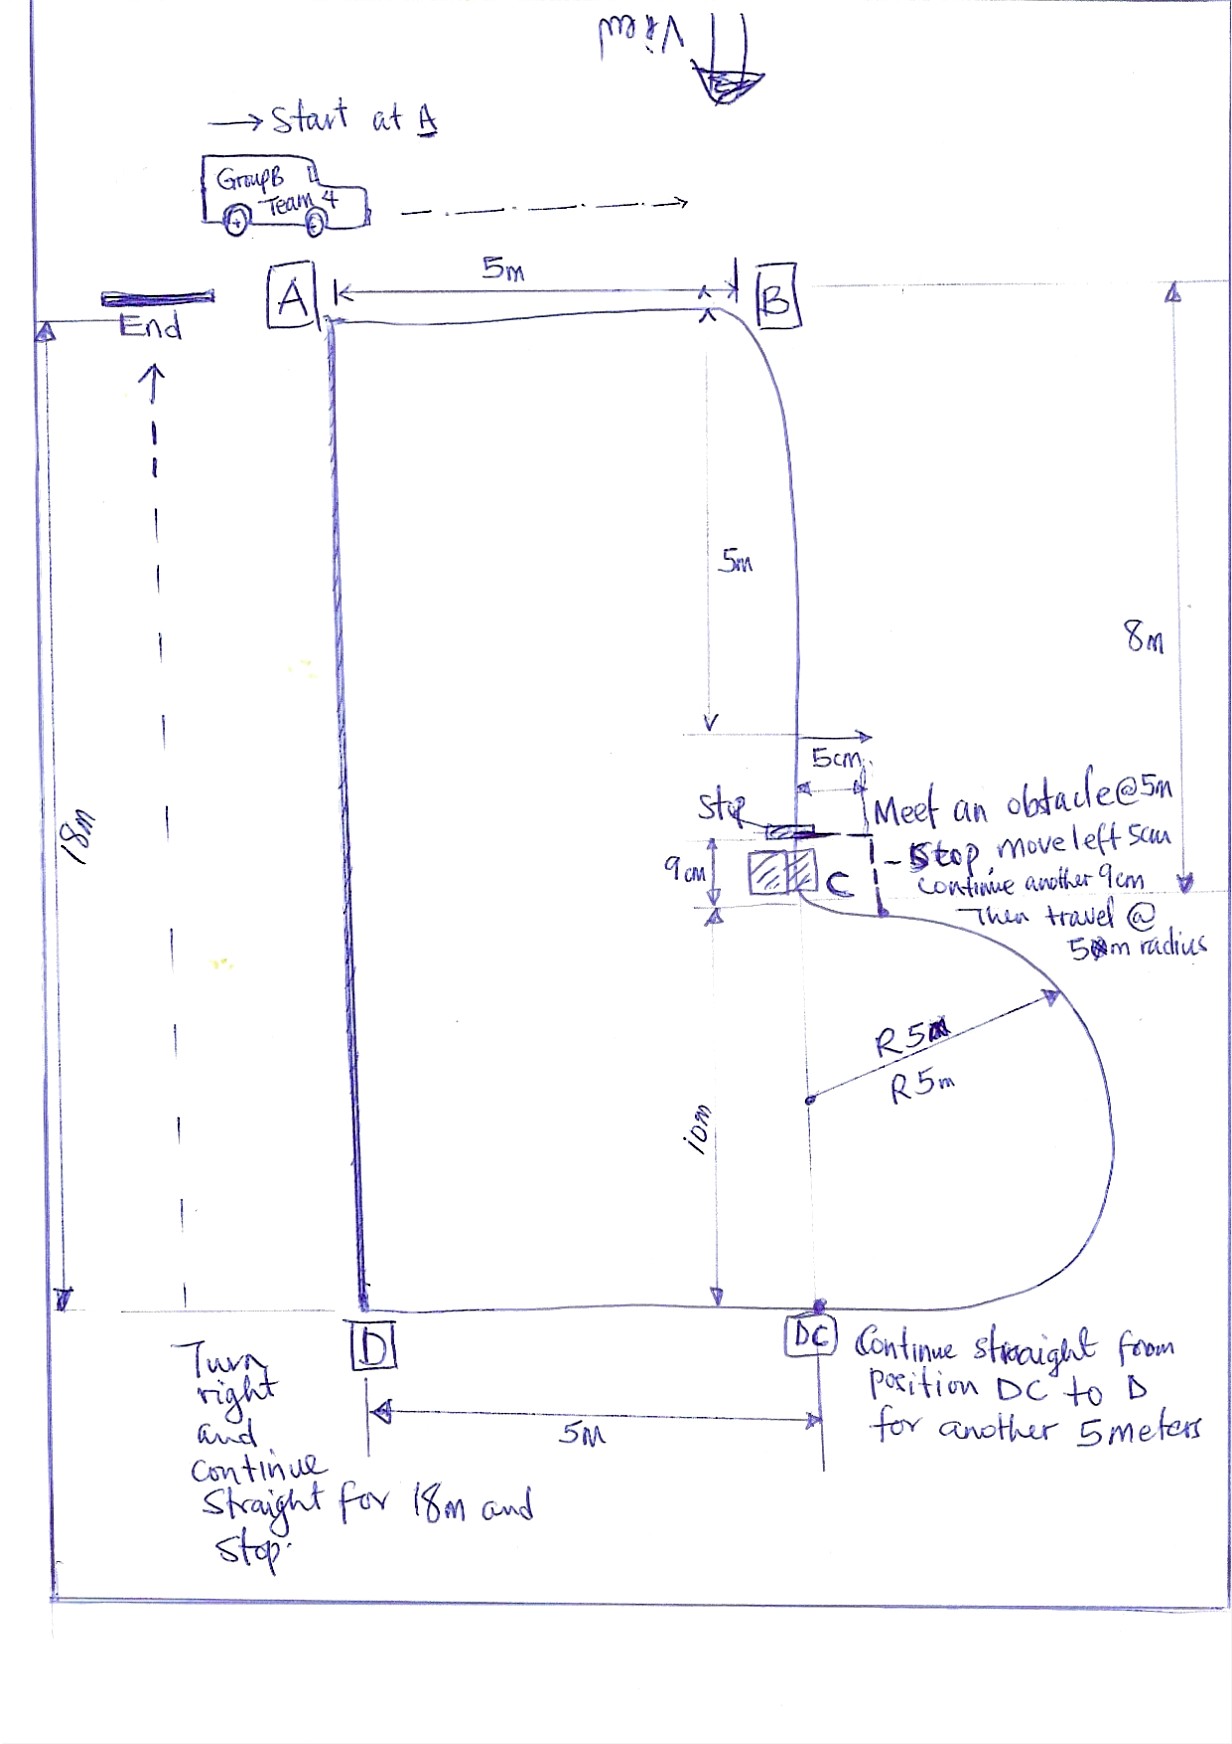 View
→ Start at A
GroupB
Team 4
5m
A
B
End
5m
8m
18m
5cm
Stop
Meet an obstacle @ 5m
- Stop, move left 5cm
9cm
C
continue another 9cm
Then travel @
5m radius
R 5m
R 5m
10m
D
DC
Continue straight from
position DC to D
for another 5 meters
5M
Turn
right
and
continue
Straight for 18m and
Stop.